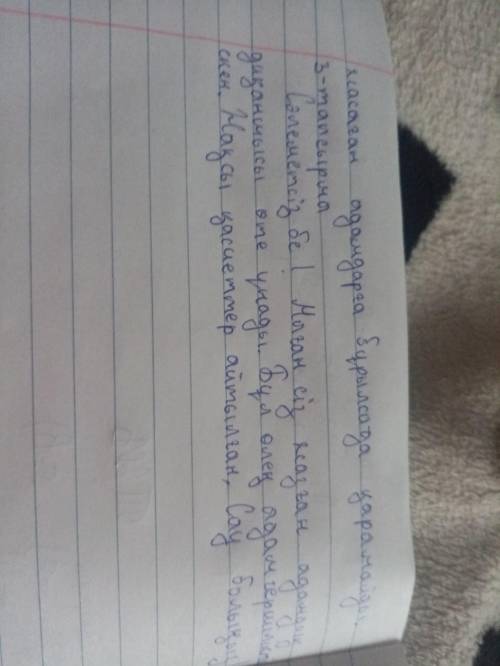 жасаған адамдарға бұрылсада қарамайды.
3-тапсырма
Сәлеметсіз бе! Маған сіз жазған адамдық
диқаншысы өте ұнады. Бұл өлең адамгершілік
екен. Жақсы қасиеттер айтылған, Сау болыңыз